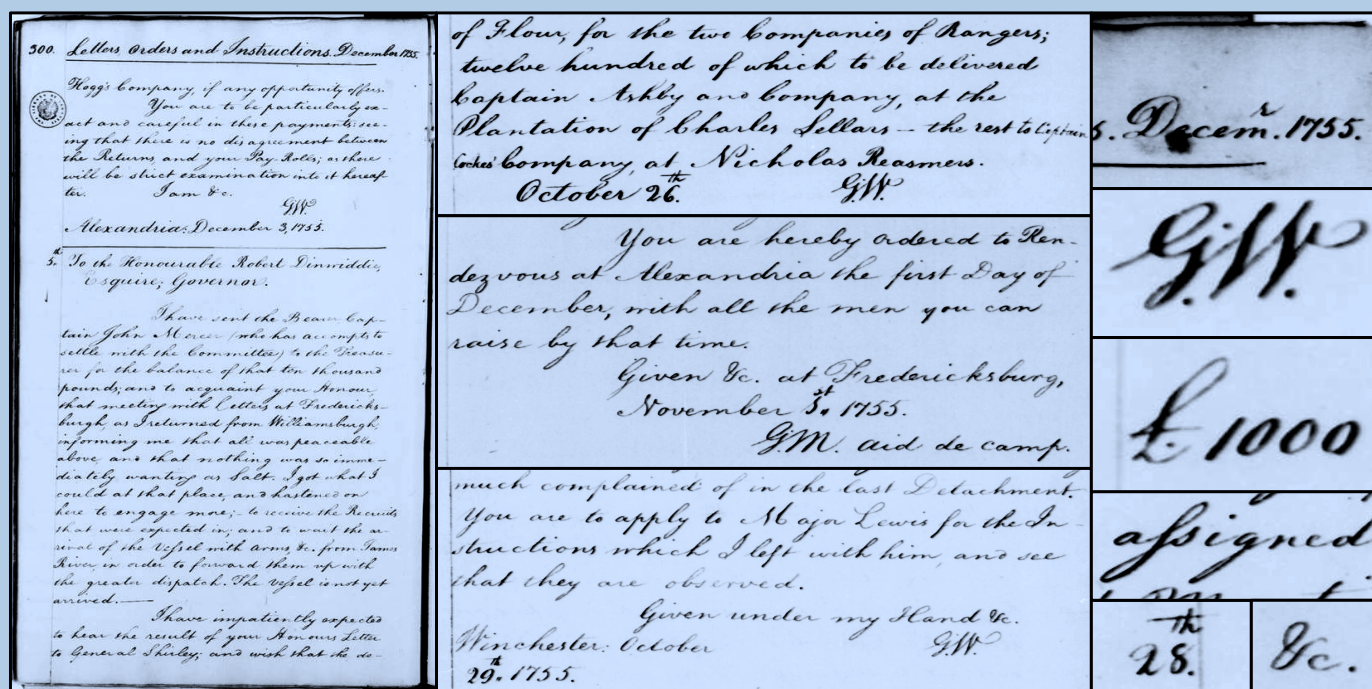 300. Letters, Orders and Instructions. December 1755.
Hogg's Company, if any opportunity offers.
You are to be particularly ex-
act and careful in these payments: see-
ing that there is no disagreement between
the Returns, and your Pay-Rolls; as there
will be strict examination into it hereaf-
ter. I am &c.
G.W.
Alexandria: December 3, 1755.
5.th To the Honourable Robert Dinwiddie,
Esquire; Governor.
I have sent the Bearer Cap-
tain John Mercer (who has accompts to
settle with the Committee) to the Treasu-
rer for the balance of that ten thousand
pounds; and to acquaint your Honour,
that meeting with Letters at Fredericks-
burgh, as I returned from Williamsburgh,
informing me that all was peaceable
above and that nothing was so imme-
diately wanting as Salt. I got what I
could at that place, and hastened on
here to engage more; to receive the Recruits
that were expected in; and to wait the ar-
rival of the Vessel with arms, &c. from James
River, in order to forward them up with
the greater dispatch. The vessel is not yet
arrived.
I have impatiently expected
to hear the result of your Honours Letter
to General Shirley; and wish that the de-
of Flour, for the two Companies of Rangers;
twelve hundred of which to be delivered
Captain Ashby and Company, at the
Plantation of Charles Sellars — the rest to Captain
Cockes' Company, at Nicholas Reasmers.
October 26.th G.W.
You are hereby ordered to Ren-
dezvous at Alexandria the first Day of
December, with all the men you can
raise by that time.
Given &c. at Fredericksburg,
November 5.th 1755.
G.M. aid de camp.
much complained of in the last Detachment.
You are to apply to Major Lewis for the In-
structions which I left with him, and see
that they are observed.
Given under my Hand &c.
Winchester: October G.W.
29.th 1755.
5. Decem.r 1755.
G.W.
£ 1000
assigned
28.th
&c.